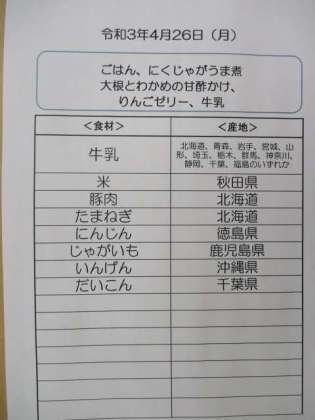 令和3年4月26日（月）
ごはん、にくじゃがうま煮
大根とわかめの甘酢かけ、
りんごゼリー、牛乳
＜食材＞ ＜産地＞
牛乳 北海道、青森、岩手、宮城、山
形、埼玉、栃木、群馬、神奈川、
静岡、千葉、福島のいずれか
米 秋田県
豚肉 北海道
たまねぎ 北海道
にんじん 徳島県
じゃがいも 鹿児島県
いんげん 沖縄県
だいこん 千葉県